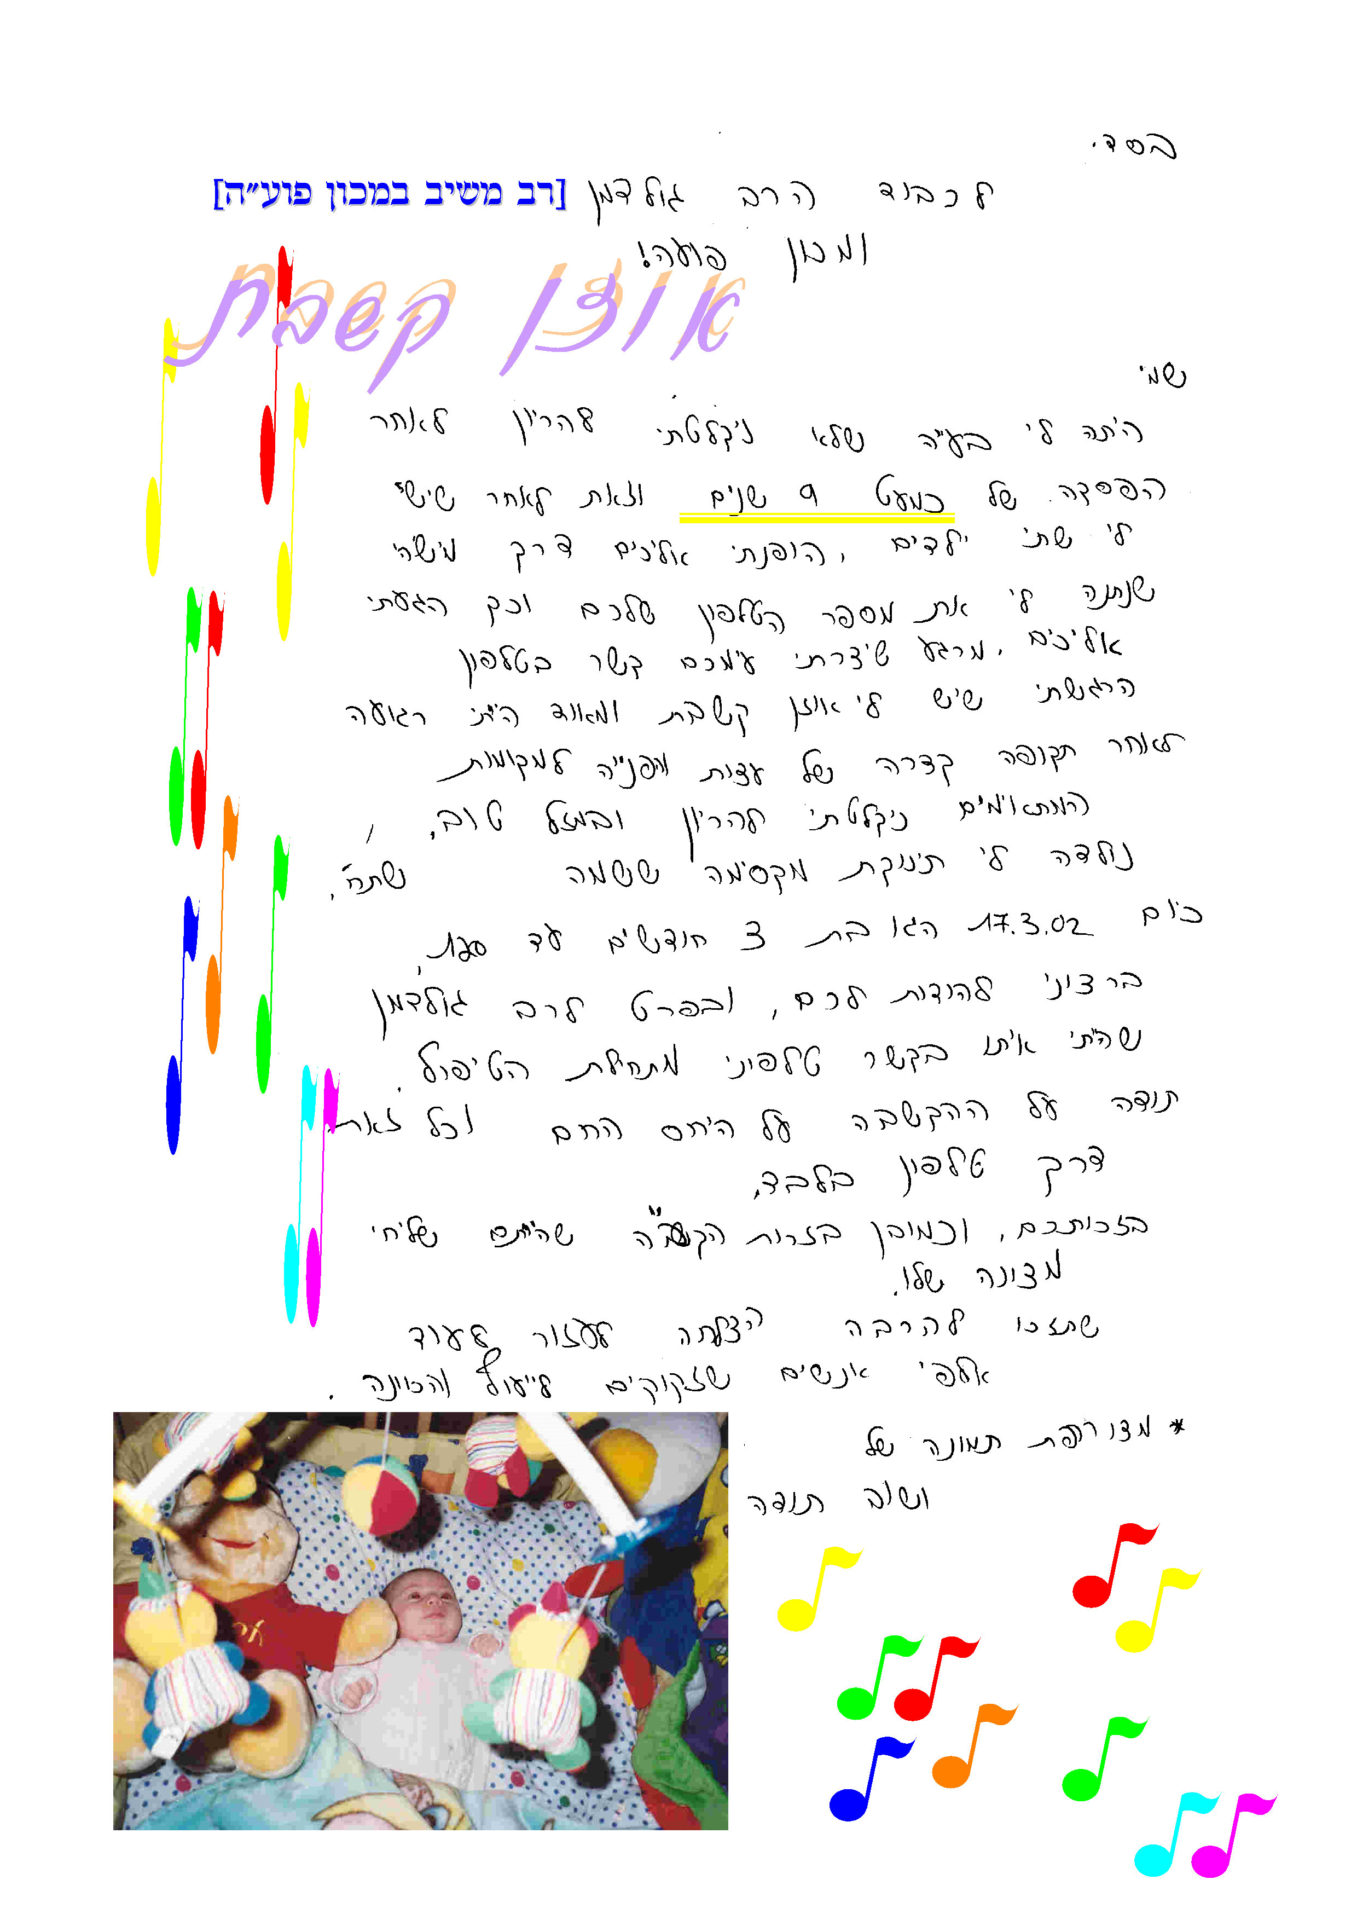 בסד.
לכבוד הרב גולדמן [רב משיב במכון פוע״ה]
ומכון פועה!
אוזן קשבת
שמי
היתה לי בעיה שלא ניקלטתי להריון לאחר
הפסדה של כמעט 9 שנים וזאת לאחר שיש
לי שתי ילדים, הופנתי אליכים דרך מישהי
שנתנה לי את מספר הטלפון שלכם וכך הגעתי
אליכים, מרגע שיצרתי עימכם קשר בטלפון
הרגשתי שיש לי אוזן קשבת ומאוד הייתי רגועה
לאחר תקופה קצרה של עצות והפנייה למקומות
המתאימים ניקלטתי להריון ובמזל טוב,
נולדה לי תינוקת מקסימה ששמה שתחי,
כיום 17.3.02 הגו בת 3 חודשים עד 120,
ברציני להודות לכם, ובפרט לרב גולדמן
שהיתי איתו בקשר טלפוני מתחילת הטיפול.
תודה על ההקשבה על היחס החם וכל זאת
דרך טלפון בלבד.
בזכותכם, וכמובן בזרות הקב"ה שהייתם שליחי
מצווה שלו.
שתזכו להרבה הצלחה לעזור לעוד
אלפי אנשים שזקוקים לייעול והכוינה.
* מצורפת תמונה של
ושוב תודה